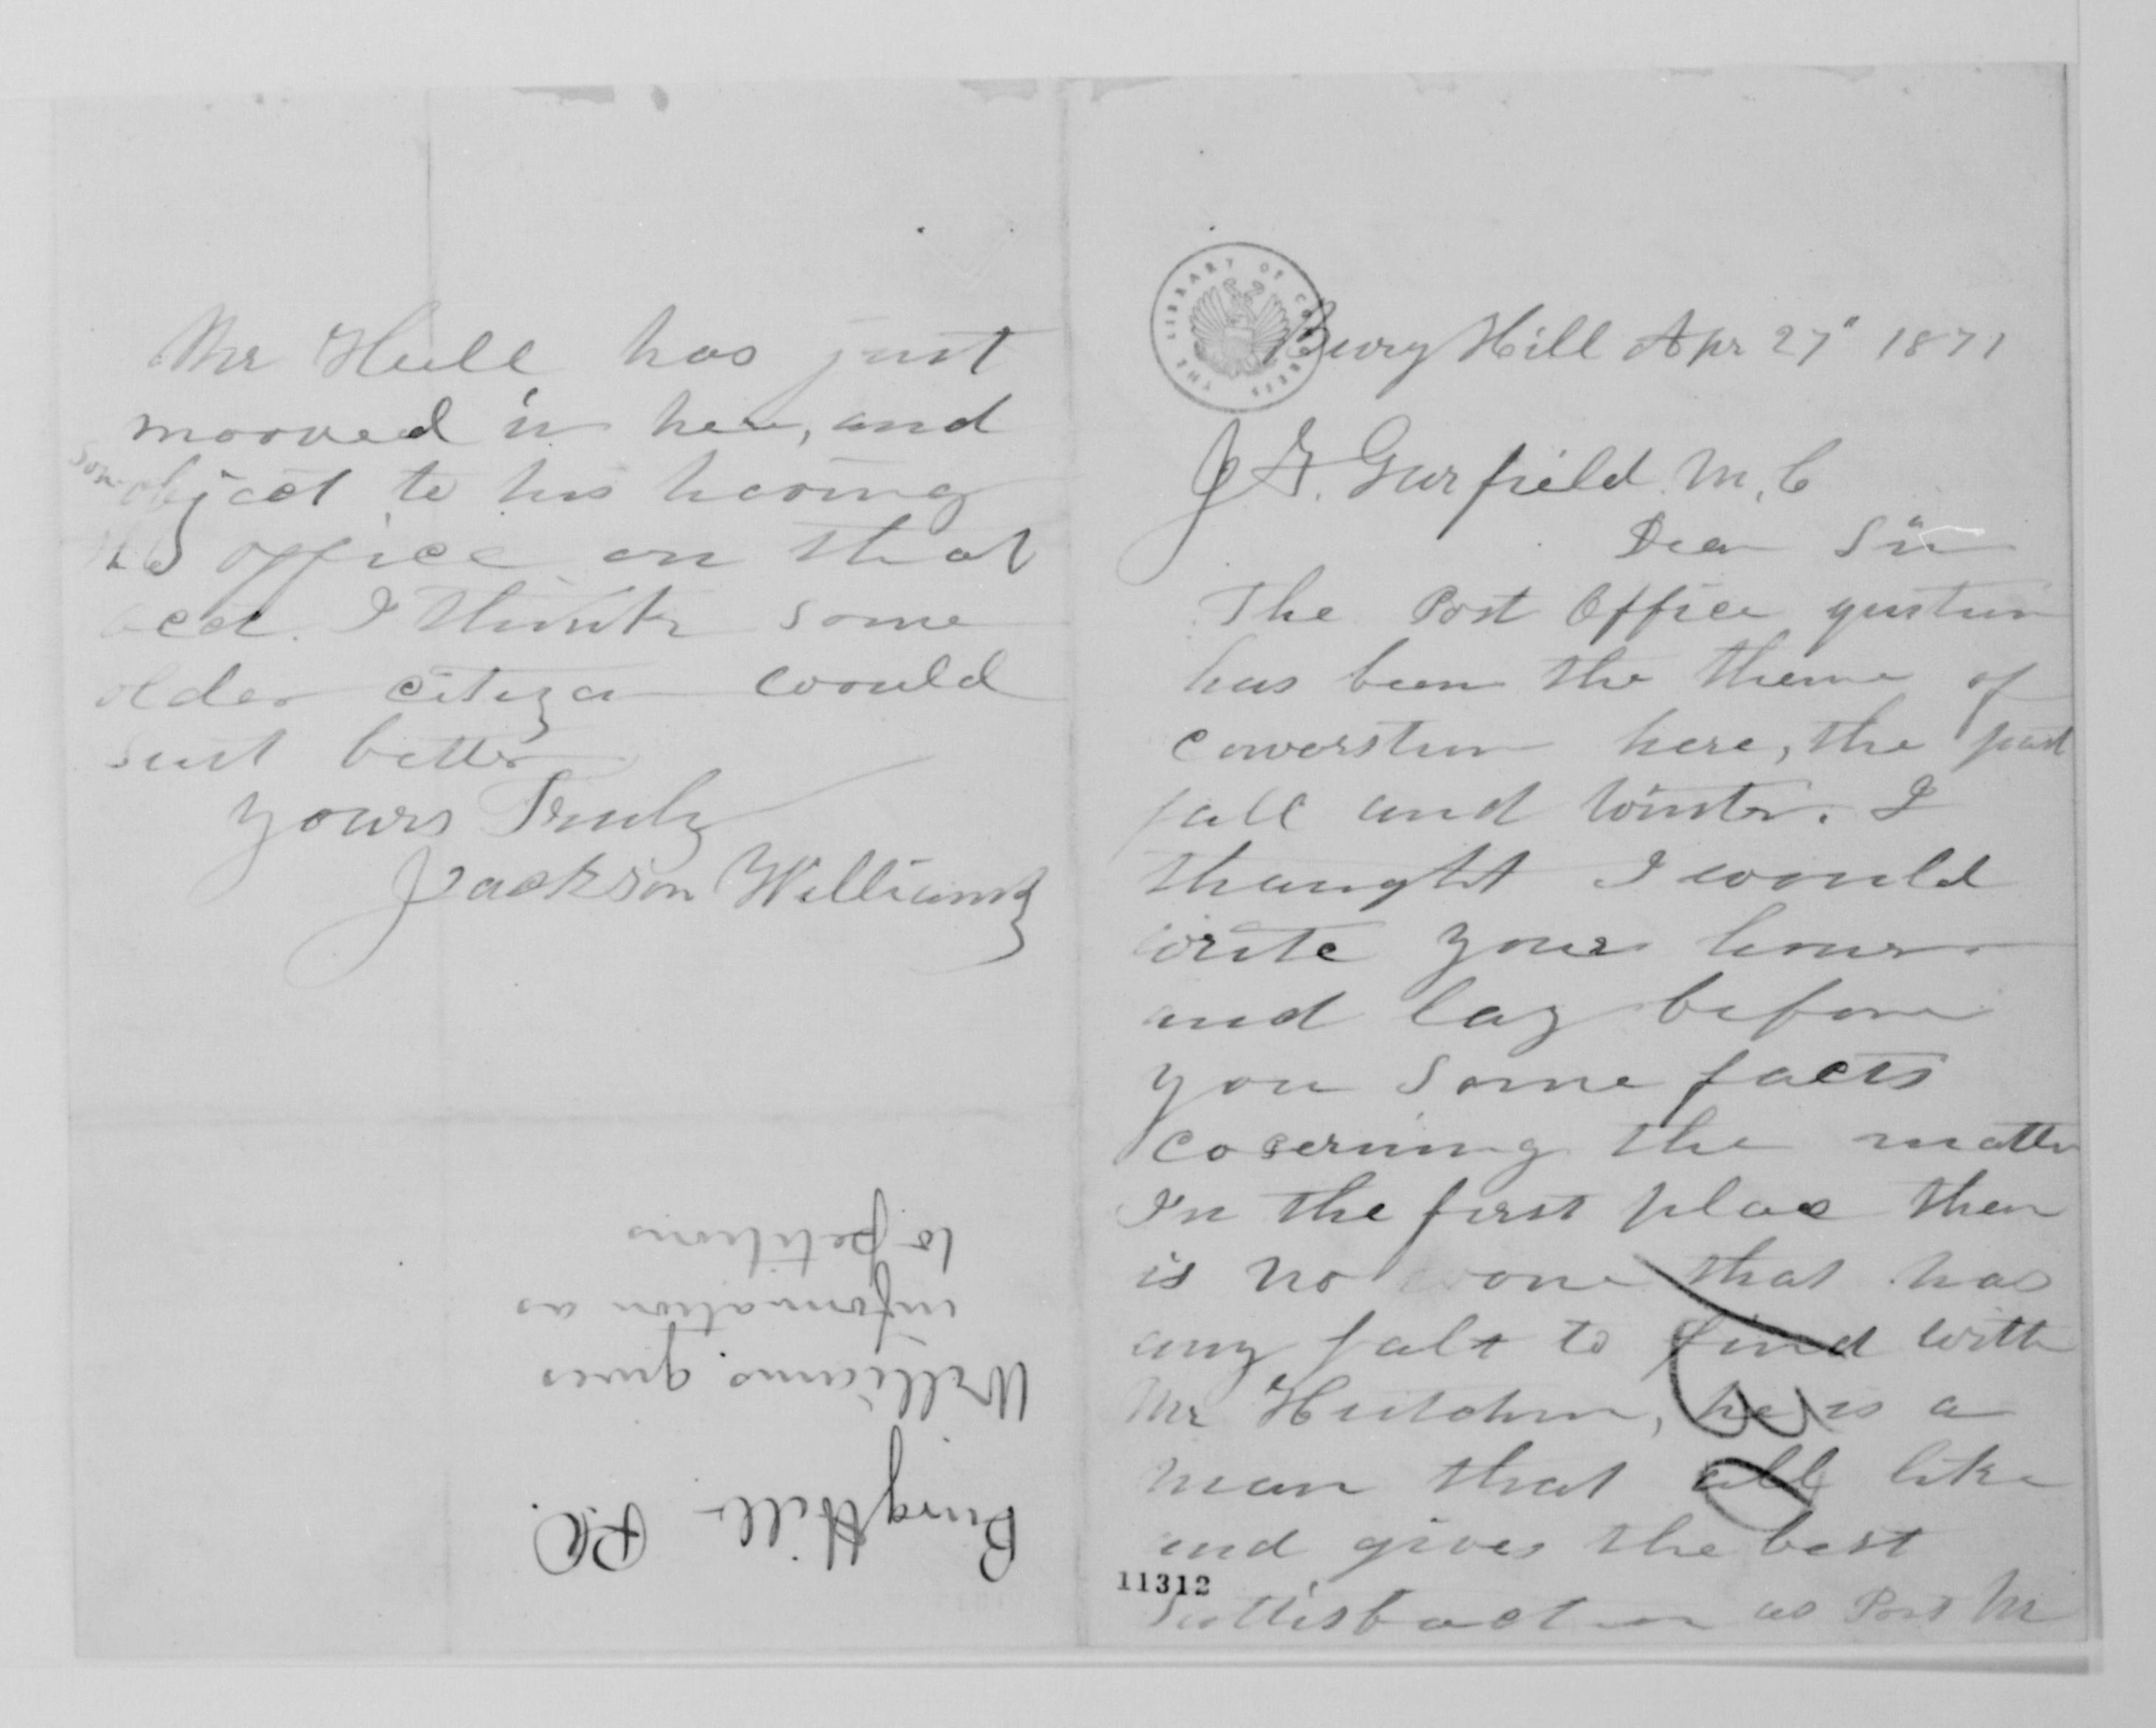 Burg Hill Apr 27" 1871
J. A. Garfield M.C
Dear Sir
The Post Office qustion
has been the theme of
converstion here, the past
fall and winter. I
thought I would
write your honor
and lay before
you some facts
cocerning the matter
In the first place there
is no one that has
any falt to find with
Mr Hutchins, he is a
man that all like
and gives the best
sattisfaction as Post M
11312
THE LIBRARY OF CONGRESS
Mr Hull has just
mooved in here, and
some object to his having
the office on that
acct. I think some
older citizen would
suit better
Yours Truly
Jackson Williams
Burg Hill P.O.
Williams gives
information as
to petitions